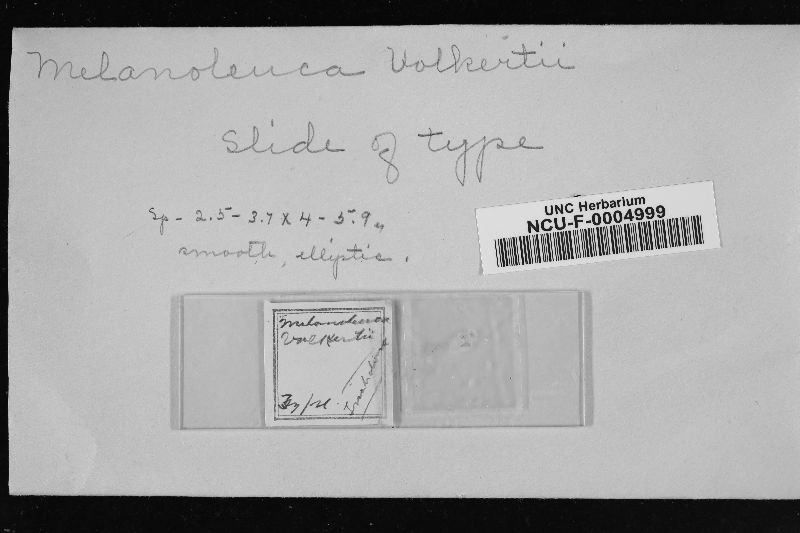 Melanoleuca Volkertii
Slide of type
Sp - 2.5 - 3.7 X 4 - 5.9 µ
smooth, elliptic.
UNC Herbarium
NCU-F-0004999
Melanoleuca
Volkertii
Type